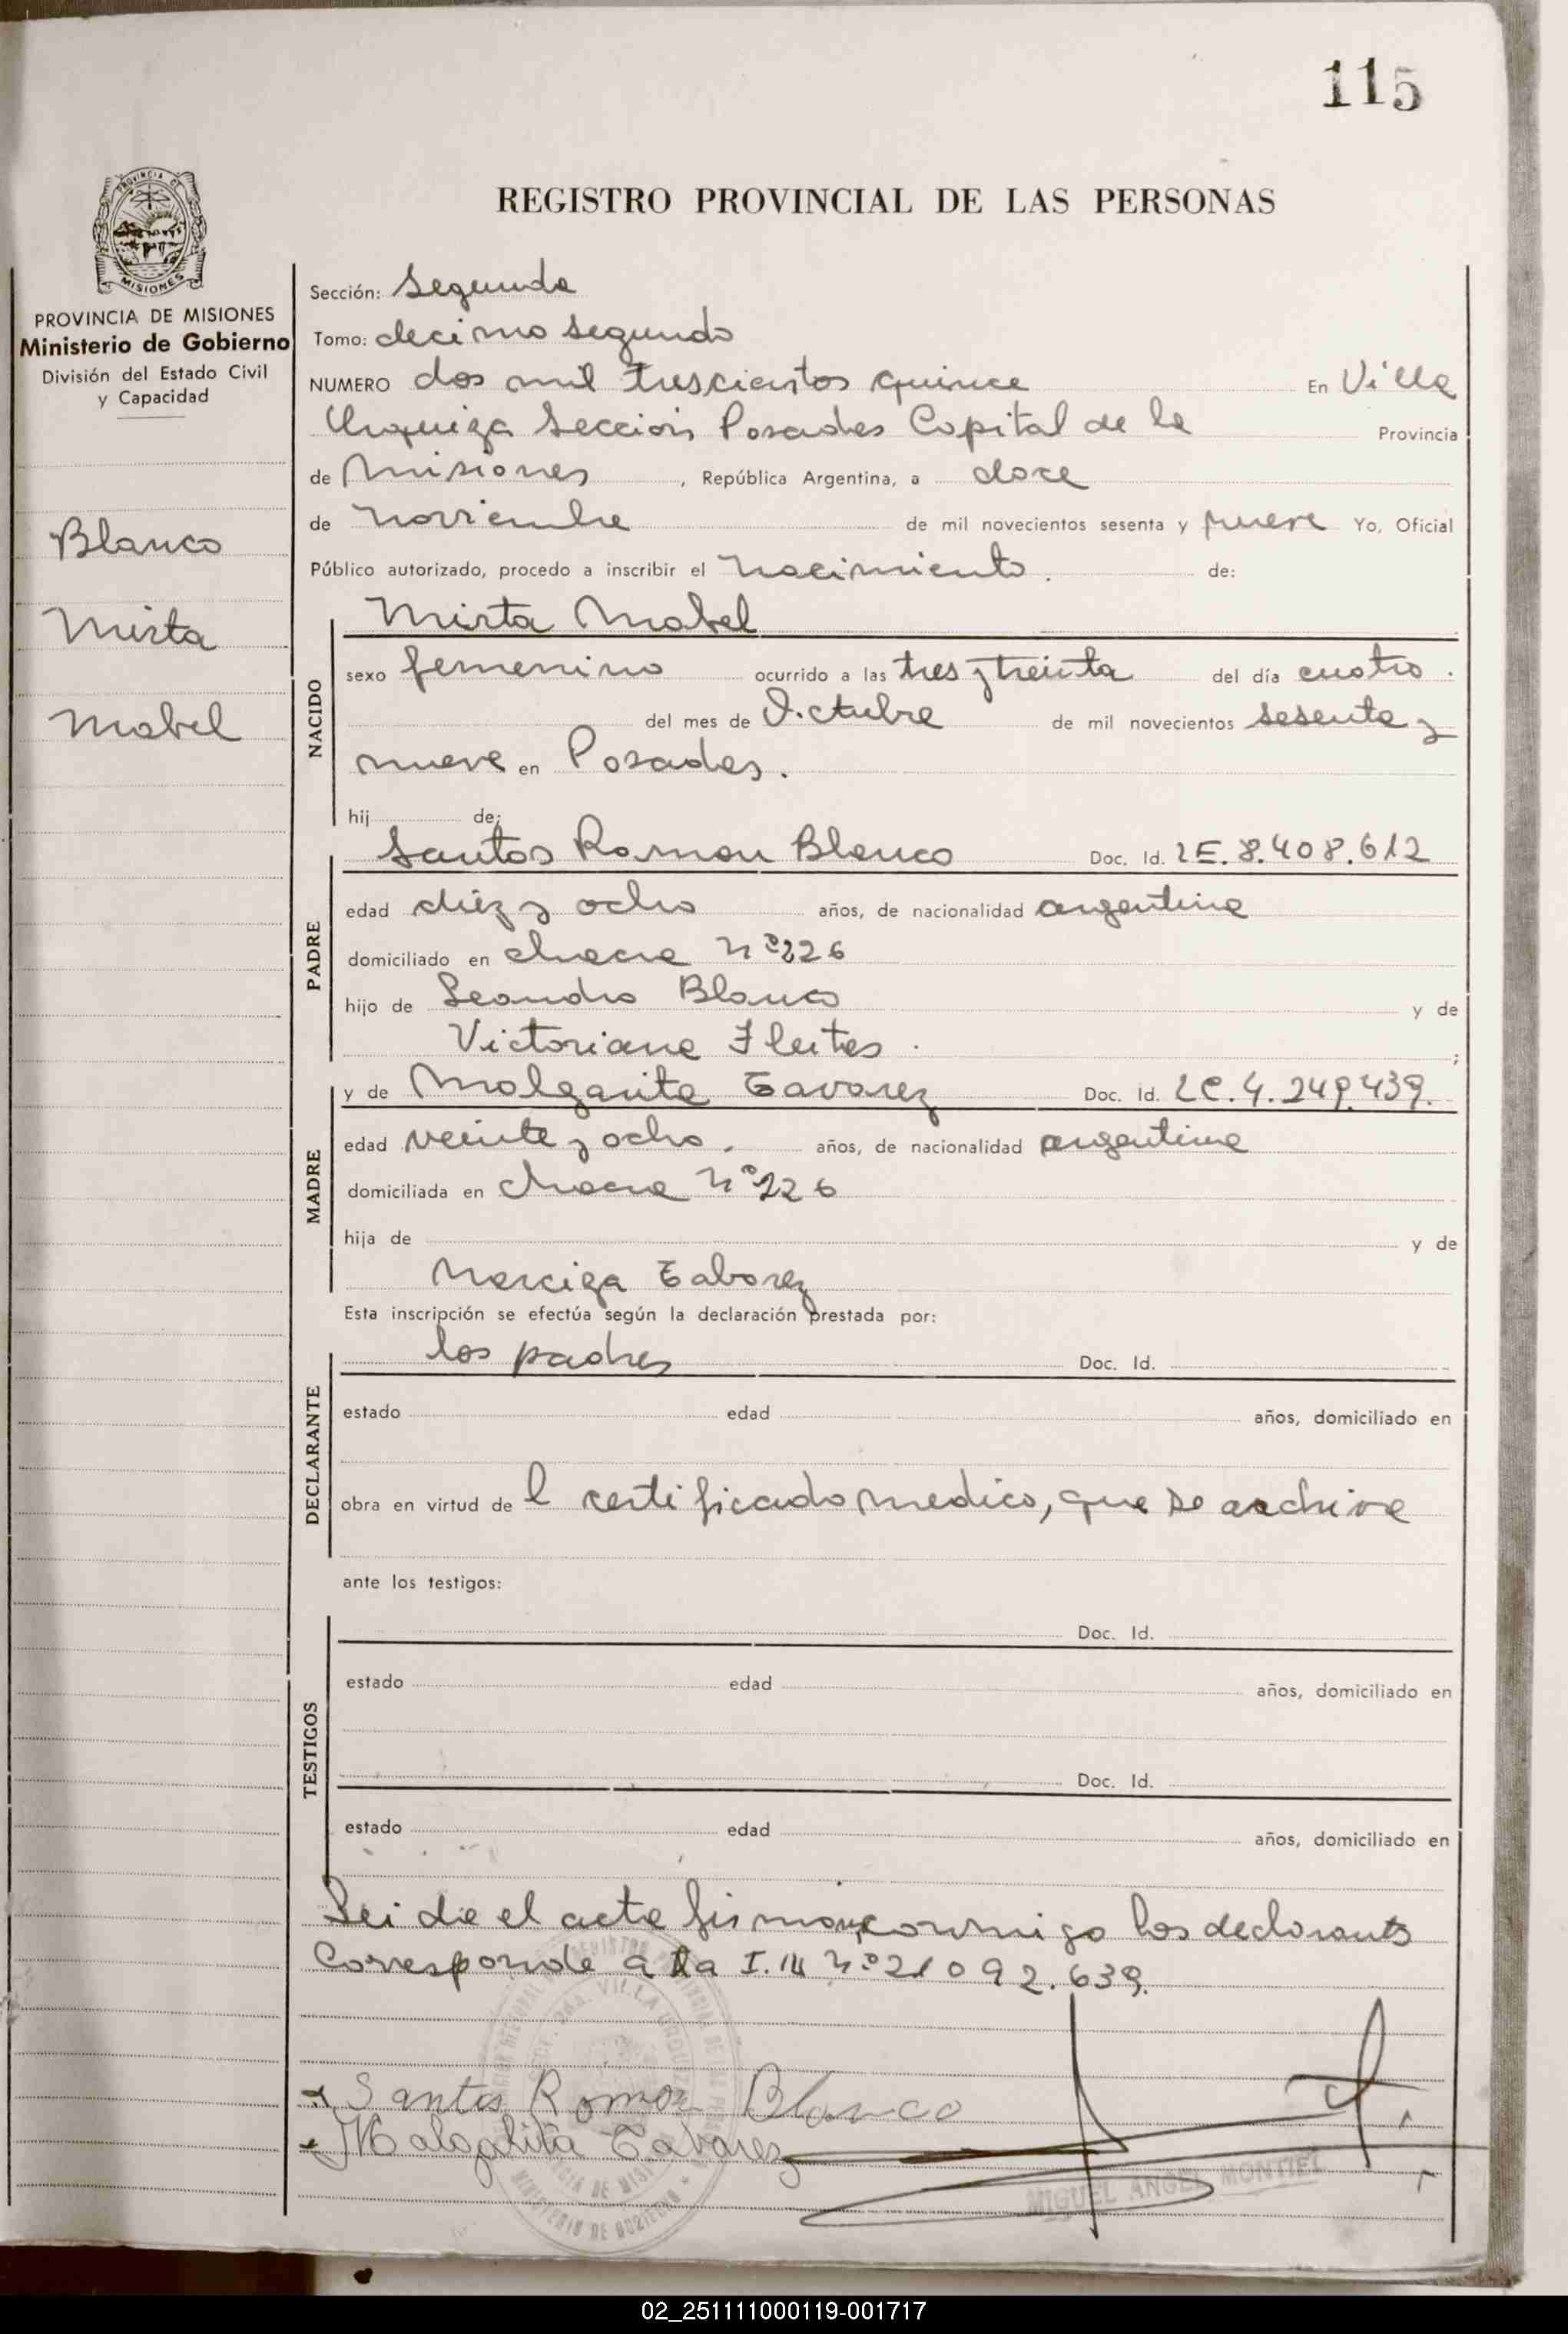 115
REGISTRO PROVINCIAL DE LAS PERSONAS
PROVINCIA DE MISIONES
Ministerio de Gobierno
División del Estado Civil
y Capacidad
Blanco
Mirta
Mabel
Sección: Segunda
Tomo: decimo segundo
NUMERO dos mil trescientos quince En Villa
Urquiza Sección Posadas Capital de la Provincia
de Misiones, República Argentina, a doce
de noviembre de mil novecientos sesenta y nueve Yo, Oficial
Público autorizado, procedo a inscribir el nacimiento. de:
NACIDO
Mirta Mabel
sexo femenino ocurrido a las tres y treinta del día cuatro.
del mes de Octubre de mil novecientos sesenta y
nueve en Posadas.
hij de:
PADRE
Santos Ramon Blanco Doc. Id. LE. 8.408.612
edad diez y ocho años, de nacionalidad argentina
domiciliado en chacra nº 226
hijo de Leandro Blanco y de
Victoriana Fleitas.;
MADRE
y de Malgarita Tavarez Doc. Id. LC. 4.249.439.
edad veinte y ocho. años, de nacionalidad argentina
domiciliada en chacra nº 226
hija de y de
Narciza Tabarez
Esta inscripción se efectúa según la declaración prestada por:
DECLARANTE
los padres Doc. Id.
estado edad años, domiciliado en
obra en virtud de l certificado medico, que se archiva
ante los testigos:
TESTIGOS
Doc. Id.
estado edad años, domiciliado en
Doc. Id.
estado edad años, domiciliado en
Lei da el acta firman conmigo los declarants
Corresponde a la I. M nº 21 092.639.
Santos Ramon Blanco
Malgarita Tabarez
MIGUEL ANGEL MONTIEL
02_251111000119-001717